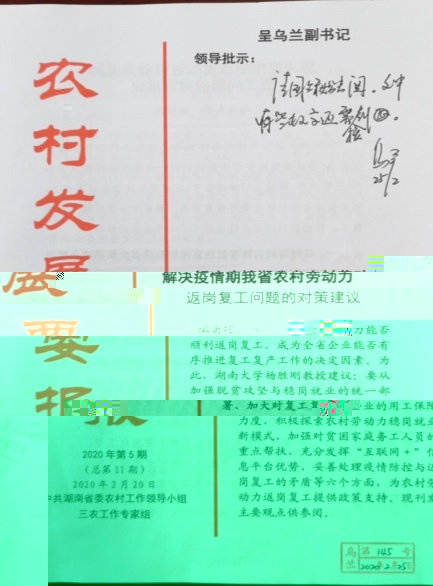 呈乌兰副书记
领导批示：
农村发展要报
解决疫情期我省农村劳动力
返岗复工问题的对策建议
力能否
顺利返岗复工，成为全省企业能否有
序推进复工复产工作的决定因素。为
此，湖南大学杨胜刚教授建议：要从
加强脱贫攻坚与稳岗就业的统一部
署、加大对复工复
企业的用工保障
力度、积极探索农村劳动力稳岗就业
新模式、加强对贫困家庭务工人员的
重点帮扶、充分发挥“互联网+”信
息平台优势、妥善处理疫情防控与返
岗复工的矛盾等六个方面，为农村劳
动力返岗复工提供政策支持。现刊发
主要观点供参阅。
2020年第5期
（总第11期）
2020年2月20日
中共湖南省委农村工作领导小组
三农工作专家组
乌兰
第145号
2020年2月25日